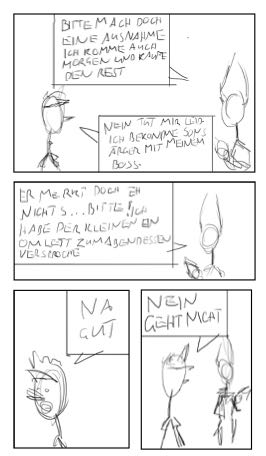 BITTE MACH DOCH
EINE AUSNAHME
ICH KOMME AUCH
MORGEN UND KAUFE
DEN REST
NEIN TUT MIR LEID
ICH BEKOMME SONS
ÄRGER MIT MEINEM
BOSS.
ER MERKT DOCH EH
NICHTS... BITTE! ICH
HABE DER KLEINEN EIN
OMLETT ZUM ABENDESSEN
VERSPROCHE
NA
GUT
NEIN
GEHT NICHT